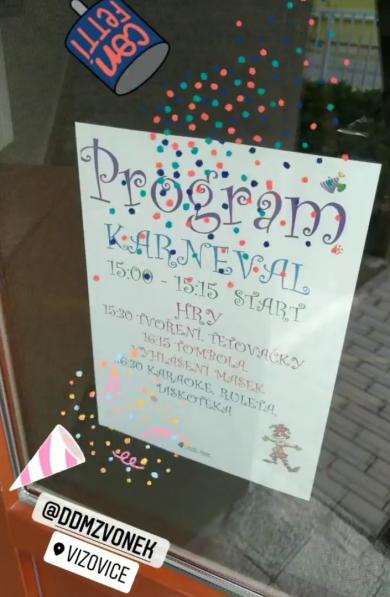 con
FETTI
Program
KARNEVAL
15:00 - 15:15 START
HRY
15:30 TVOŘENÍ, TETOVAČKY
16:15 TOMBOLA
VYHLÁŠENÍ MASEK
6:30 KARAOKE, RULETA,
DISKOTÉKA
@DDMZVONEK
VIZOVICE